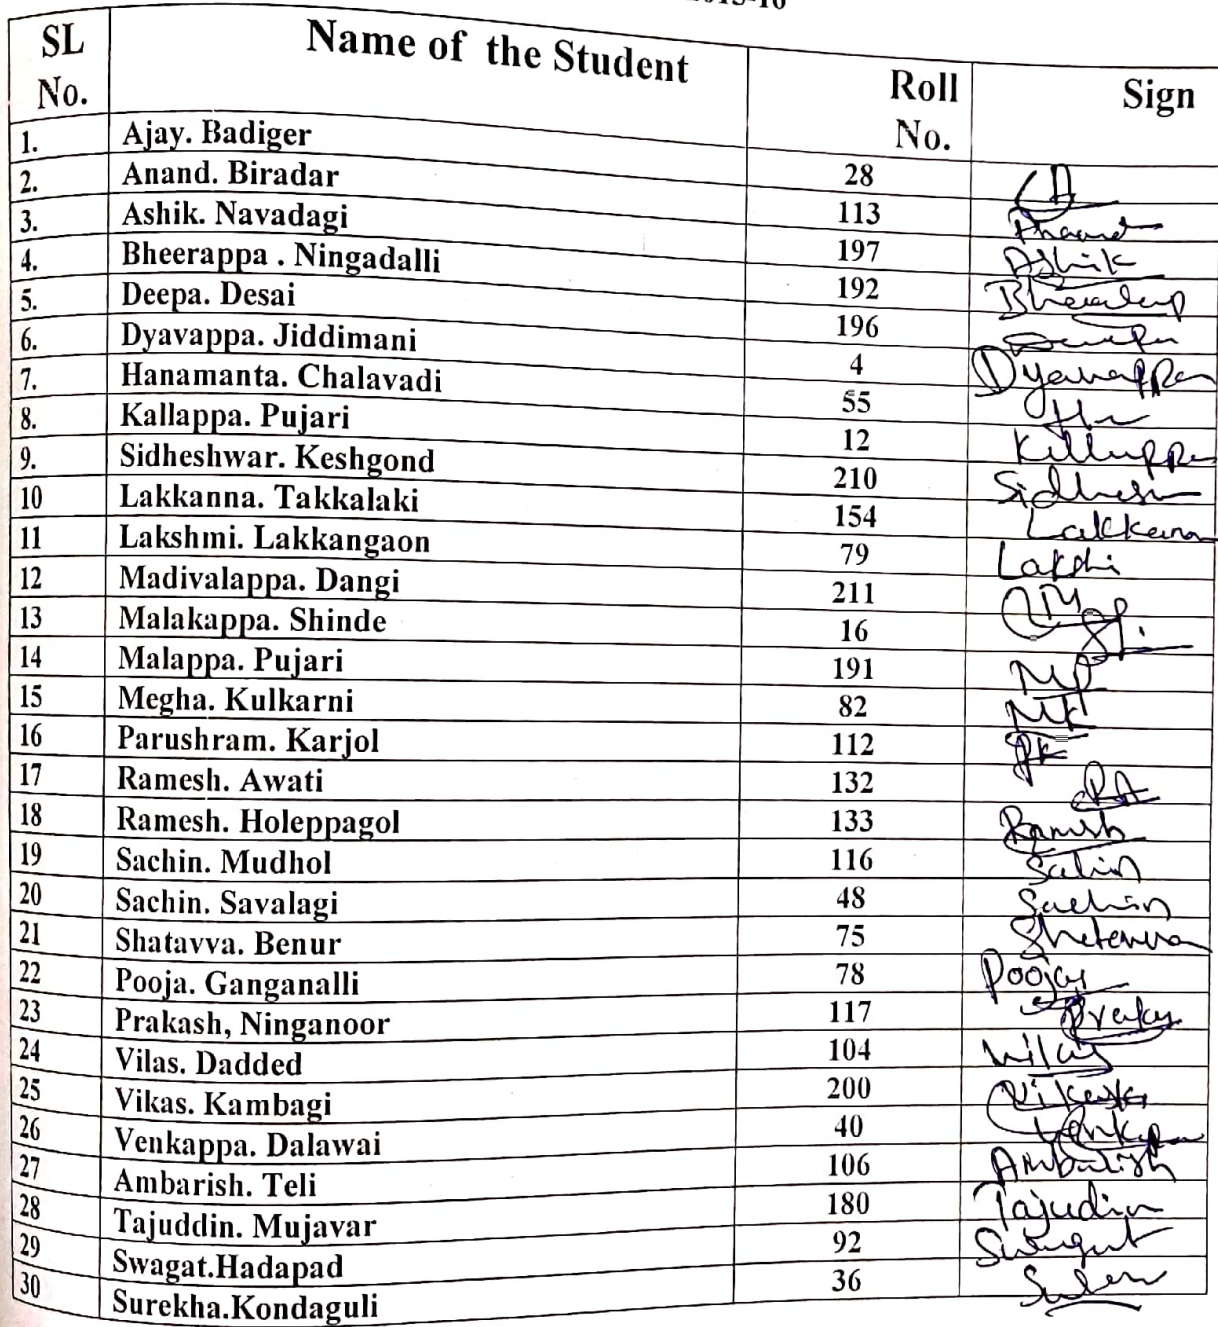 SL No. Name of the Student Roll No. Sign
1. Ajay. Badiger 28
2. Anand. Biradar 113 Anand
3. Ashik. Navadagi 197 Ashik
4. Bheerappa . Ningadalli 192
5. Deepa. Desai 196
6. Dyavappa. Jiddimani 4 Dyavappa
7. Hanamanta. Chalavadi 55
8. Kallappa. Pujari 12 Kallappa
9. Sidheshwar. Keshgond 210
10 Lakkanna. Takkalaki 154
11 Lakshmi. Lakkangaon 79
12 Madivalappa. Dangi 211
13 Malakappa. Shinde 16
14 Malappa. Pujari 191 MP
15 Megha. Kulkarni 82 MK
16 Parushram. Karjol 112 PK
17 Ramesh. Awati 132 RA
18 Ramesh. Holeppagol 133 Ramesh
19 Sachin. Mudhol 116
20 Sachin. Savalagi 48 Sachin
21 Shatavva. Benur 75
22 Pooja. Ganganalli 78 Pooja
23 Prakash, Ninganoor 117
24 Vilas. Dadded 104 Vilas
25 Vikas. Kambagi 200
26 Venkappa. Dalawai 40
27 Ambarish. Teli 106 Ambarish
28 Tajuddin. Mujavar 180 Tajudin
29 Swagat.Hadapad 92 Swagat
30 Surekha.Kondaguli 36